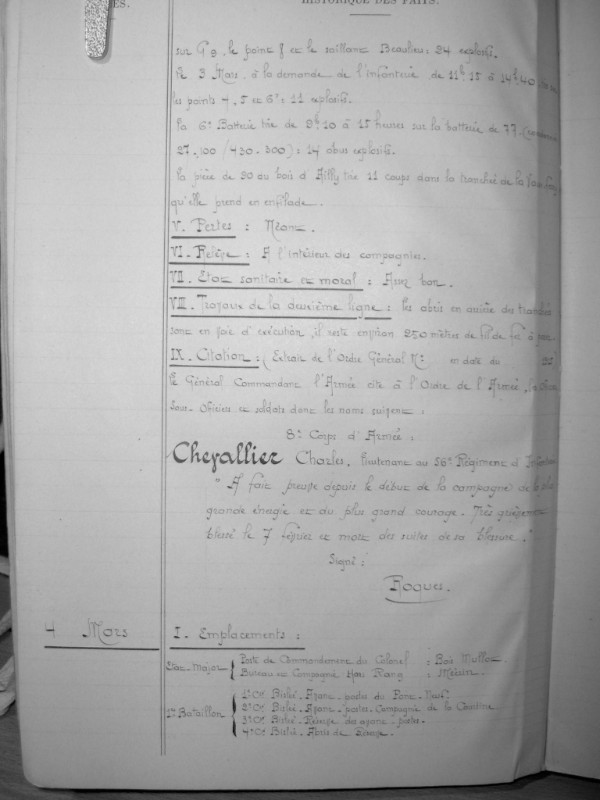 ES.
HISTORIQUE DES FAITS.
sur G 8, le point 8 et le saillant Beaulieu: 24 explosifs.
Le 3 Mars, à la demande de l'infanterie, de 11h15 à 14h40
les points 4, 5 et 6: 11 explosifs.
La 6e Batterie tire de 9h10 à 15 heures sur la batterie de 77
27.100 (430-300): 14 obus explosifs.
La pièce de 90 au bois d'Ailly tire 11 coups dans la tranchée de la
qu'elle prend en enfilade.
V. Pertes : Néant.
VI. Relève : A l'intérieur des compagnies.
VII. Etat sanitaire et moral : Assez bon.
VIII. Travaux de la deuxième ligne : Les abris en arrière des tranchées
sont en voie d'exécution, il reste environ 250 mètres de fil de fer à
IX. Citation : (Extrait de l'Ordre Général No en date du
Le Général Commandant l'Armée cite à l'Ordre de l'Armée, les
Sous-Officiers et soldats dont les noms suivent :
8e Corps d'Armée :
Chevallier Charles, Lieutenant au 56e Régiment d'Infanterie
"A fait preuve depuis le début de la campagne de la plus
grande énergie et du plus grand courage. Très grièvement
blessé le 7 février et mort des suites de sa blessure."
Signé :
Roques.
4 Mars
I. Emplacements :
Etat-Major { Poste de Commandement du Colonel : Bois Mullot
Bureau et Compagnie Hors Rang : Mécrin.
1er Bataillon { 1e Cie Bislée - Avant-postes du Pont-Neuf.
2e Cie Bislée - Avant-postes - Compagnie de la Cantine
3e Cie Bislée - Réserve des avant-postes.
4e Cie Bislée - Abris de